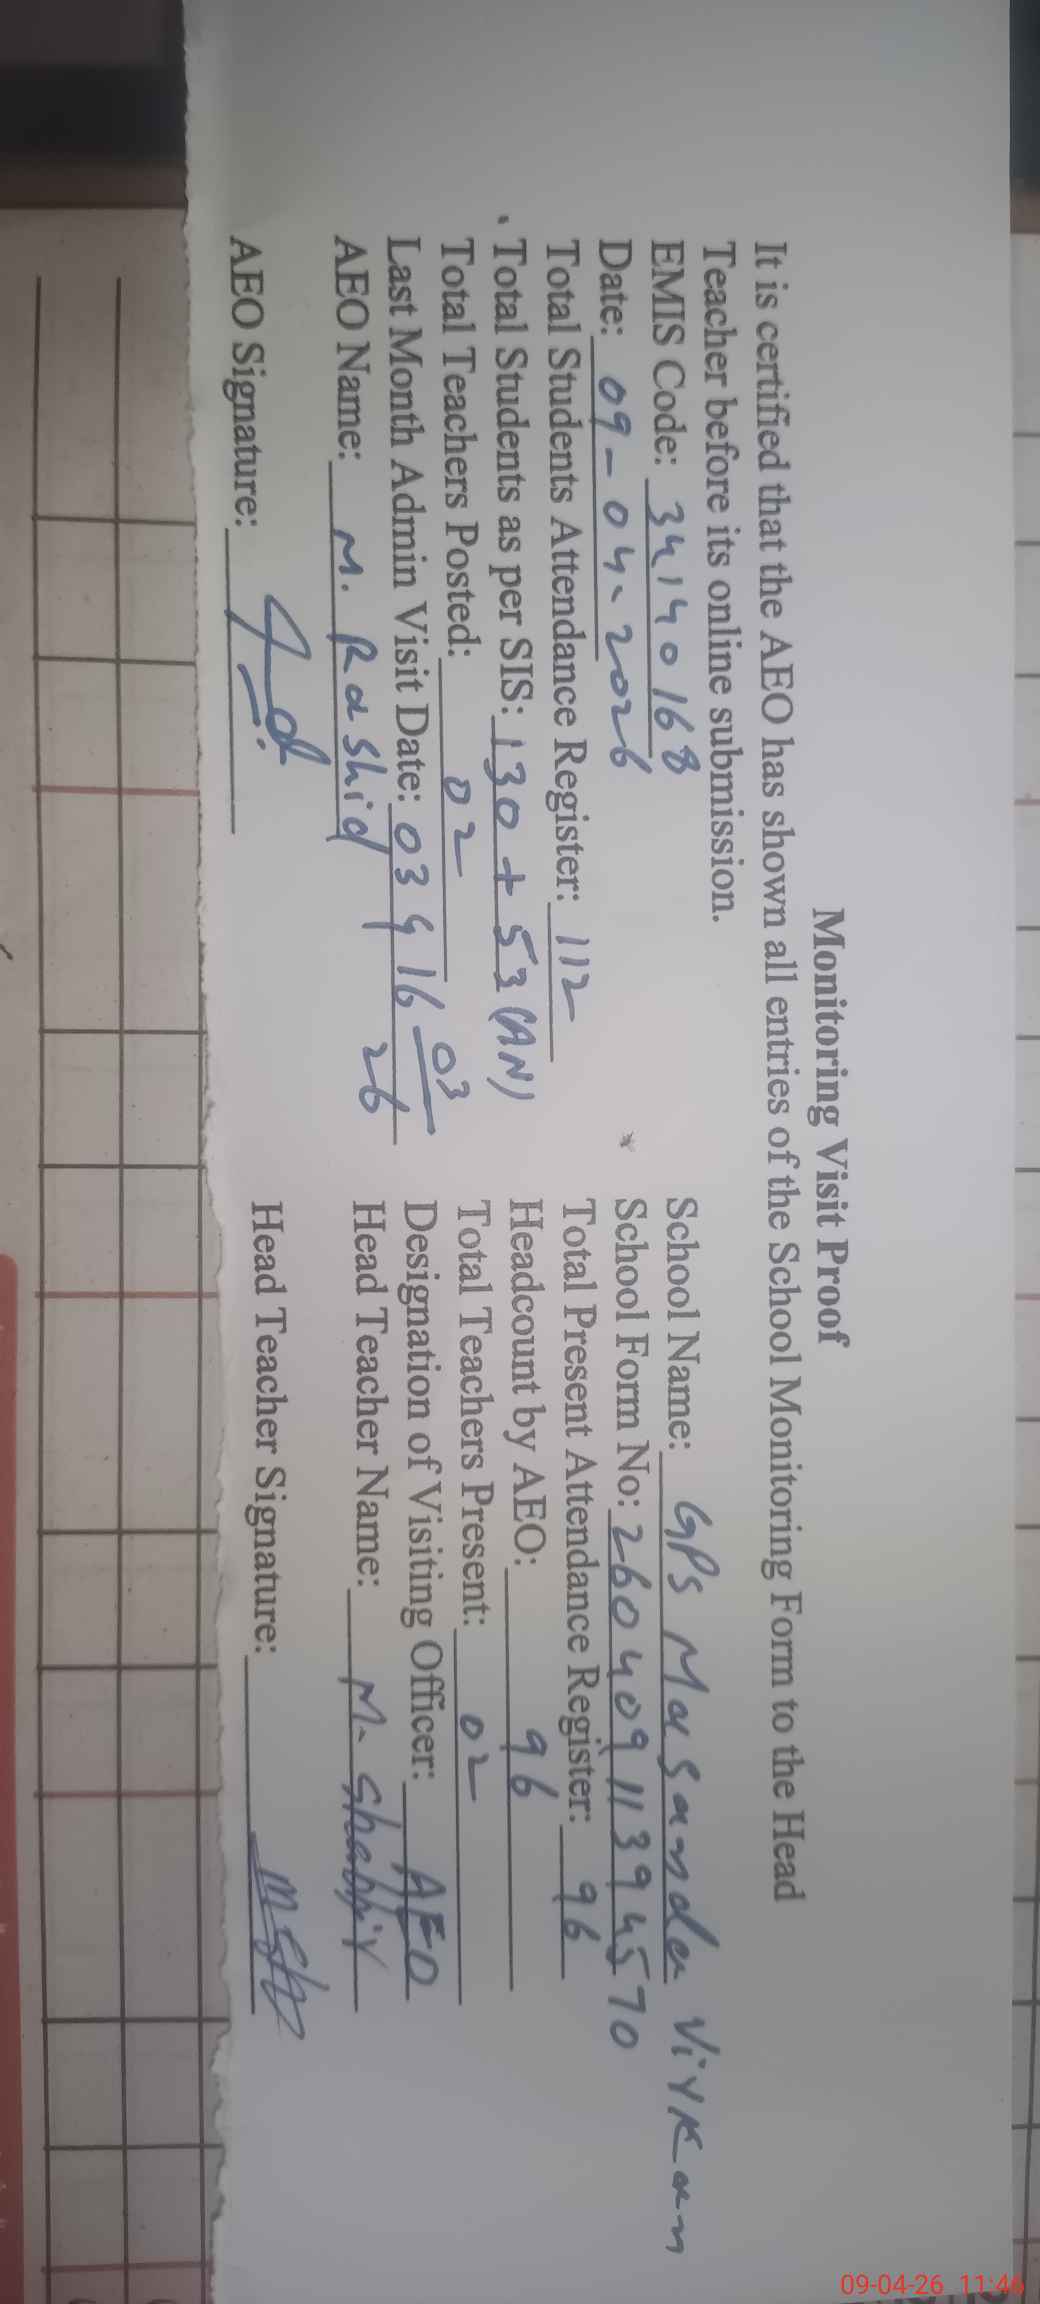 Monitoring Visit Proof
It is certified that the AEO has shown all entries of the School Monitoring Form to the Head
Teacher before its online submission.
EMIS Code: 34140168 School Name: GPS Masanda Virkan
Date: 09-04-2026 School Form No: 26040911394570
Total Students Attendance Register: 112 Total Present Attendance Register: 96
Total Students as per SIS: 130 + 53 (AN) Headcount by AEO: 96
Total Teachers Posted: 02 Total Teachers Present: 02
Last Month Admin Visit Date: 16 03 26 Designation of Visiting Officer: AEO
AEO Name: M. Rashid Head Teacher Name: M. Shabbir
AEO Signature: Head Teacher Signature:
09-04-26 11:46